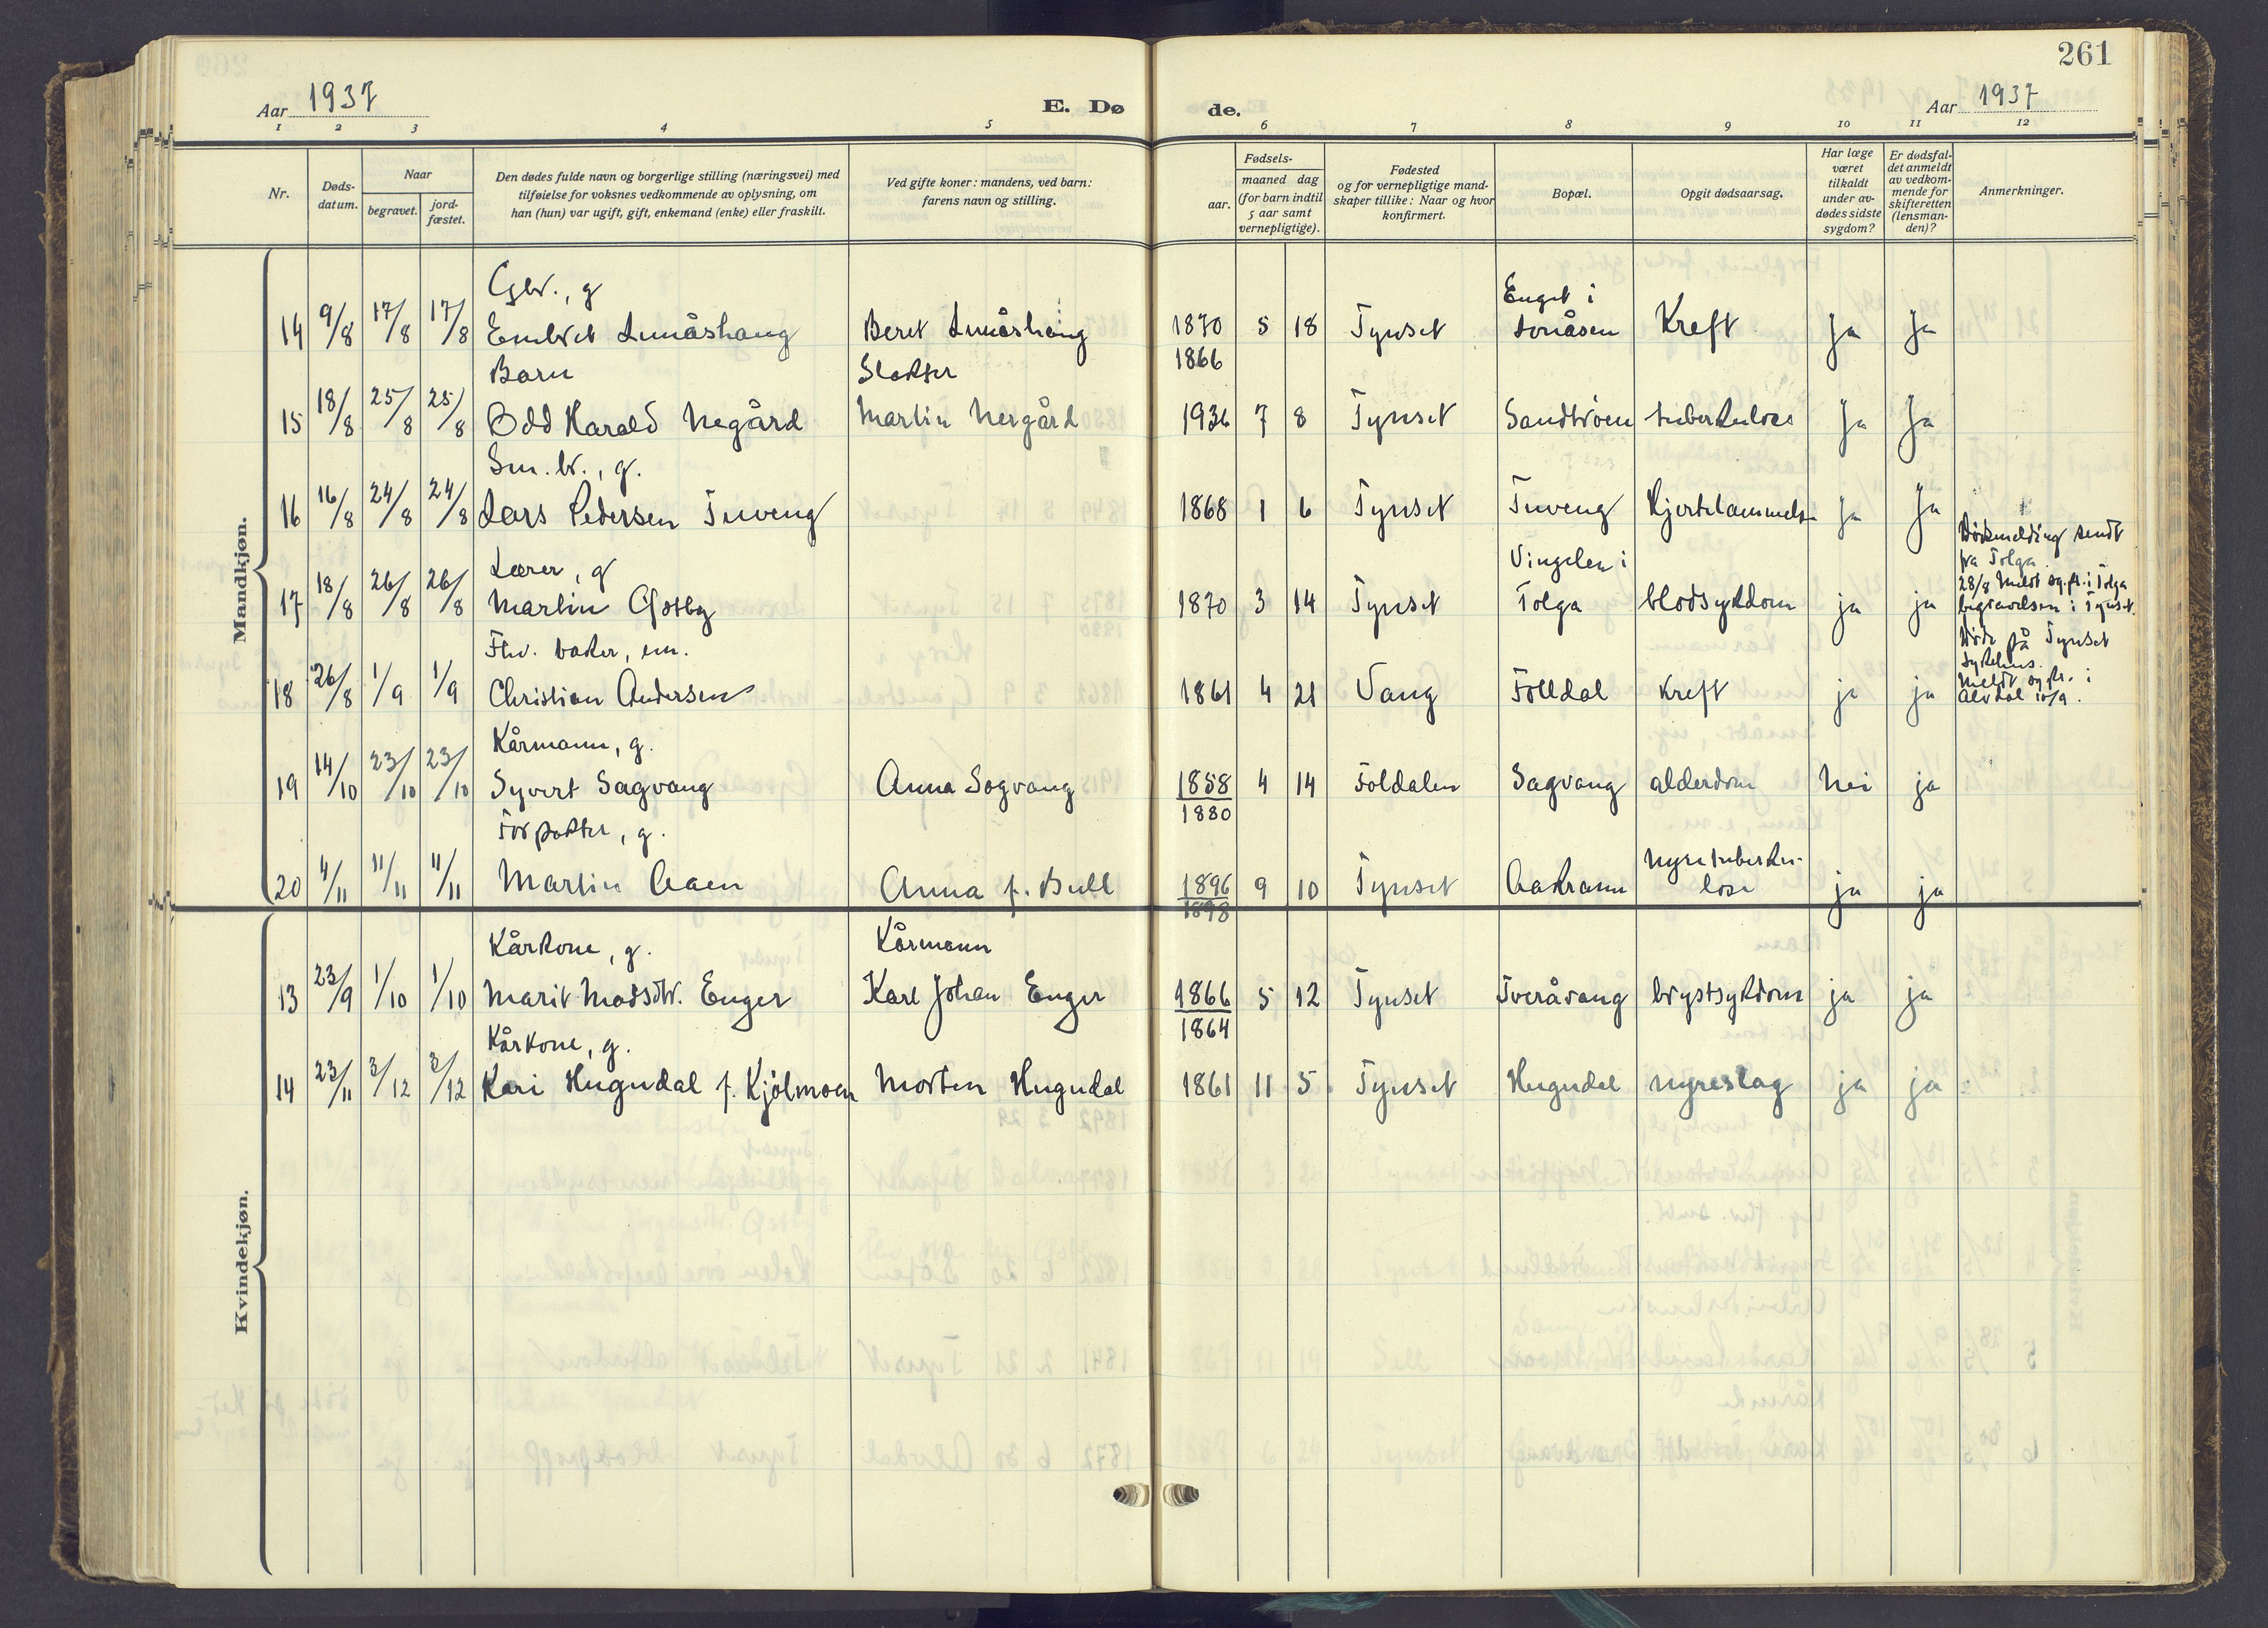 261
Aar 1937
E. Dø de.
Aar 1937
1 2 3 4 5 6 7 8 9 10 11 12
Nr.
Døds-
datum.
Naar
begravet.
jord-
fæstet.
Den dødes fulde navn og borgerlige stilling (næringsvei) med
tilføielse for voksnes vedkommende av oplysning, om
han (hun) var ugift, gift, enkemand (enke) eller fraskilt.
Ved gifte koner: mandens, ved barn:
farens navn og stilling.
Fødsels-
aar.
maaned dag
(for barn indtil
5 aar samt
vernepligtige).
Fødested
og for vernepligtige mand-
skaper tillike: Naar og hvor
konfirmert.
Bopæl.
Opgit dødsaarsag.
Har læge
været
tilkaldt
under av-
dødes sidste
sygdom?
Er dødsfal-
det anmeldt
av vedkom-
mende for
skifteretten
(lensman-
den)?
Anmerkninger.
Mandkjøn.
Gbr., g Enget i
14 9/8 17/8 17/8 Embret Lunåshaug Beret Lunåshaug 1870 5 18 Tynset Lonåsen Kreft Ja Ja
1866
Barn Slakter
15 18/8 25/8 25/8 Odd Harald Negård Martin Nergård 1936 7 8 Tynset Sandtrøen tuberkulose Ja Ja
Sm.br., g.
16 16/8 24/8 24/8 Lars Pedersen Tuveng 1868 1 6 Tynset Tuveng Hjertelammelse Ja Ja
Lærer, g Vingelen i
17 18/8 26/8 26/8 Martin Østby 1870 3 14 Tynset Tolga blodsykdom ja ja
Dødsmelding sendt
fra Tolga.
28/8 Meldt sg.pr. i Tolga
begravelsen i Tynset.
Fhv. baker, em.
18 26/8 1/9 1/9 Christian Andersen 1861 4 21 Vang Folldal Kreft ja ja
Døde på Tynset
sykehus.
Meldt sg.pr. i
Alvdal 10/9.
Kårmann, g.
19 14/10 23/10 23/10 Syvert Sagvang Anna Sagvang 1858 4 14 Foldalen Sagvang alderdom Nei ja
1880
Forpakter, g.
20 4/11 11/11 11/11 Martin Aaen Anna f. Bull 1896 9 10 Tynset Aakrann Nyretuberku-
lose ja ja
1898
Kvindekjøn.
Kårkone, g. Kårmann
13 23/9 1/10 1/10 Marit Madsdtr. Enger Karl Johan Enger 1866 5 12 Tynset Tveråvang brystsykdom ja ja
1864
Kårkone, g.
14 23/11 3/12 3/12 Kari Hugudal f. Kjølmoen Morten Hugudal 1861 11 5 Tynset Hugudal nyreslag ja ja